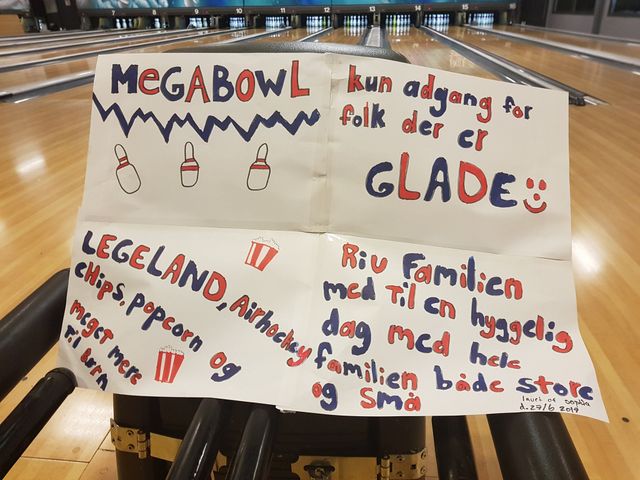 9 10 11 12 13 14 15
MeGABOWL
kun adgang for
folk der er
GLADE
LEGELAND, Airhockey
CHips, popcorn og
meget mere
Til børn
Riv Familien
med Til en hyggelig
dag med hele
familien både store
og små
lavet af Sophia
d.27/6 2019